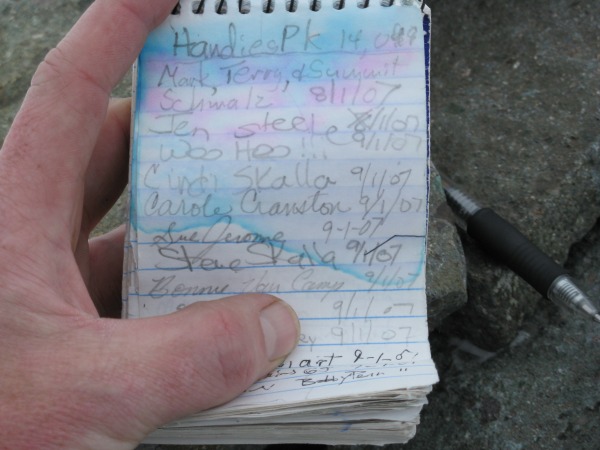 Handies Pk 14,048
Mark, Terry, & Summit
Schmalz 8/1/07
Jen Steele 9/1/07
Woo Hoo!!! 9/1/07
Cindi Skalla 9/1/07
Carole Cranston 9/1/07
Sue Jerome 9-1-07
Steve Skalla 9/1/07
Bonnie Van Camp 9/1/07
9/1/07
9/1/07
9-1-0